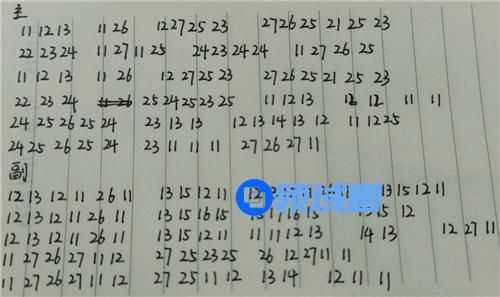 主
11 12 13 11 26 12 27 25 23 27 26 25 21 25 23
22 23 24 11 27 11 25 24 23 24 24 11 27 26 25
11 12 13 11 26 12 27 25 23 27 26 25 21 25 23
22 23 24 25 24 25 23 25 11 12 13 12 12 11 11
24 25 26 25 24 23 13 13 12 13 14 13 12 11 12 25
24 25 26 25 24 23 11 11 11 27 26 27 11
副
12 13 12 11 26 11 13 15 12 11 12 11 13 15 12 11
12 13 12 11 26 11 13 15 16 15 15 12
12 13 12 11 26 11 13 15 12 11 11 11 12 13 14 13 12 27 11
11 27 26 27 11 12 27 25 23 25 26 12 27 11 11
11 27 26 27 11 12 27 25 11 12 13 14 12 11 11